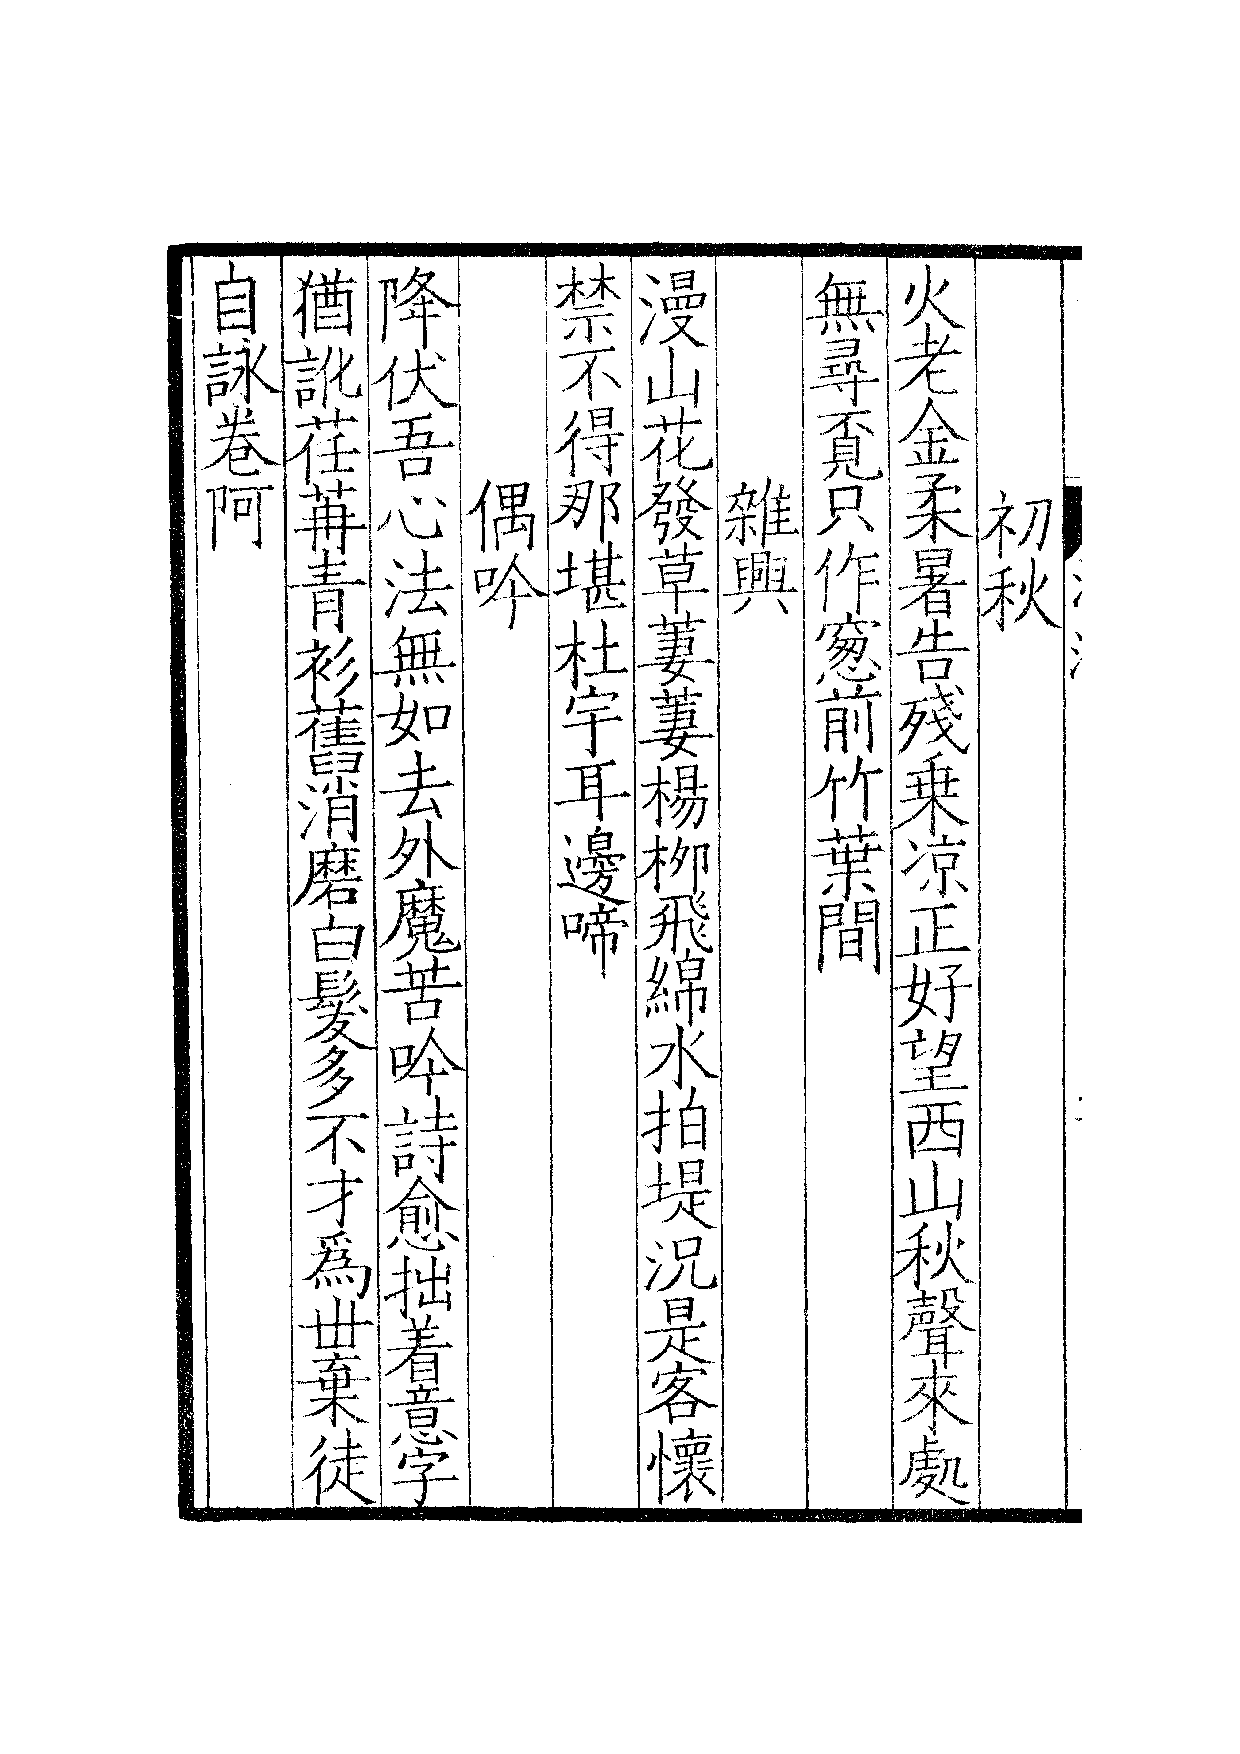 初秋
火老金柔暑告殘乗凉正好望西山秋聲來處
無尋覔只作窓前竹葉間
雜興
漫山花發草萋萋楊柳飛綿水拍堤況是客懷
禁不得那堪杜宇耳邊啼
偶吟
降伏吾心法無如去外魔苦吟詩愈拙着意字
猶訛荏苒青衫舊消磨白髮多不才爲世棄徒
自詠卷阿